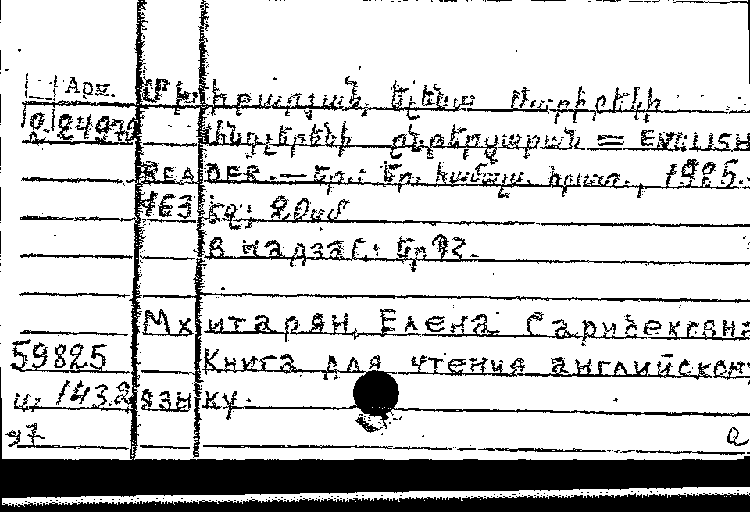 Арм. Մխիթարյան, Ելենա Սարիբեկի
Ձ 24979 Անգլերենի ընթերցարան = ENGLISH
READER. — Եր.: Եր. համալս. հրատ., 1985.
163 էջ; 20սմ
В надзаг.: ЕрПԻ.
Мхитарян, Елена Сарибековна
59825 Книга для чтения английском
1432 языку.
а